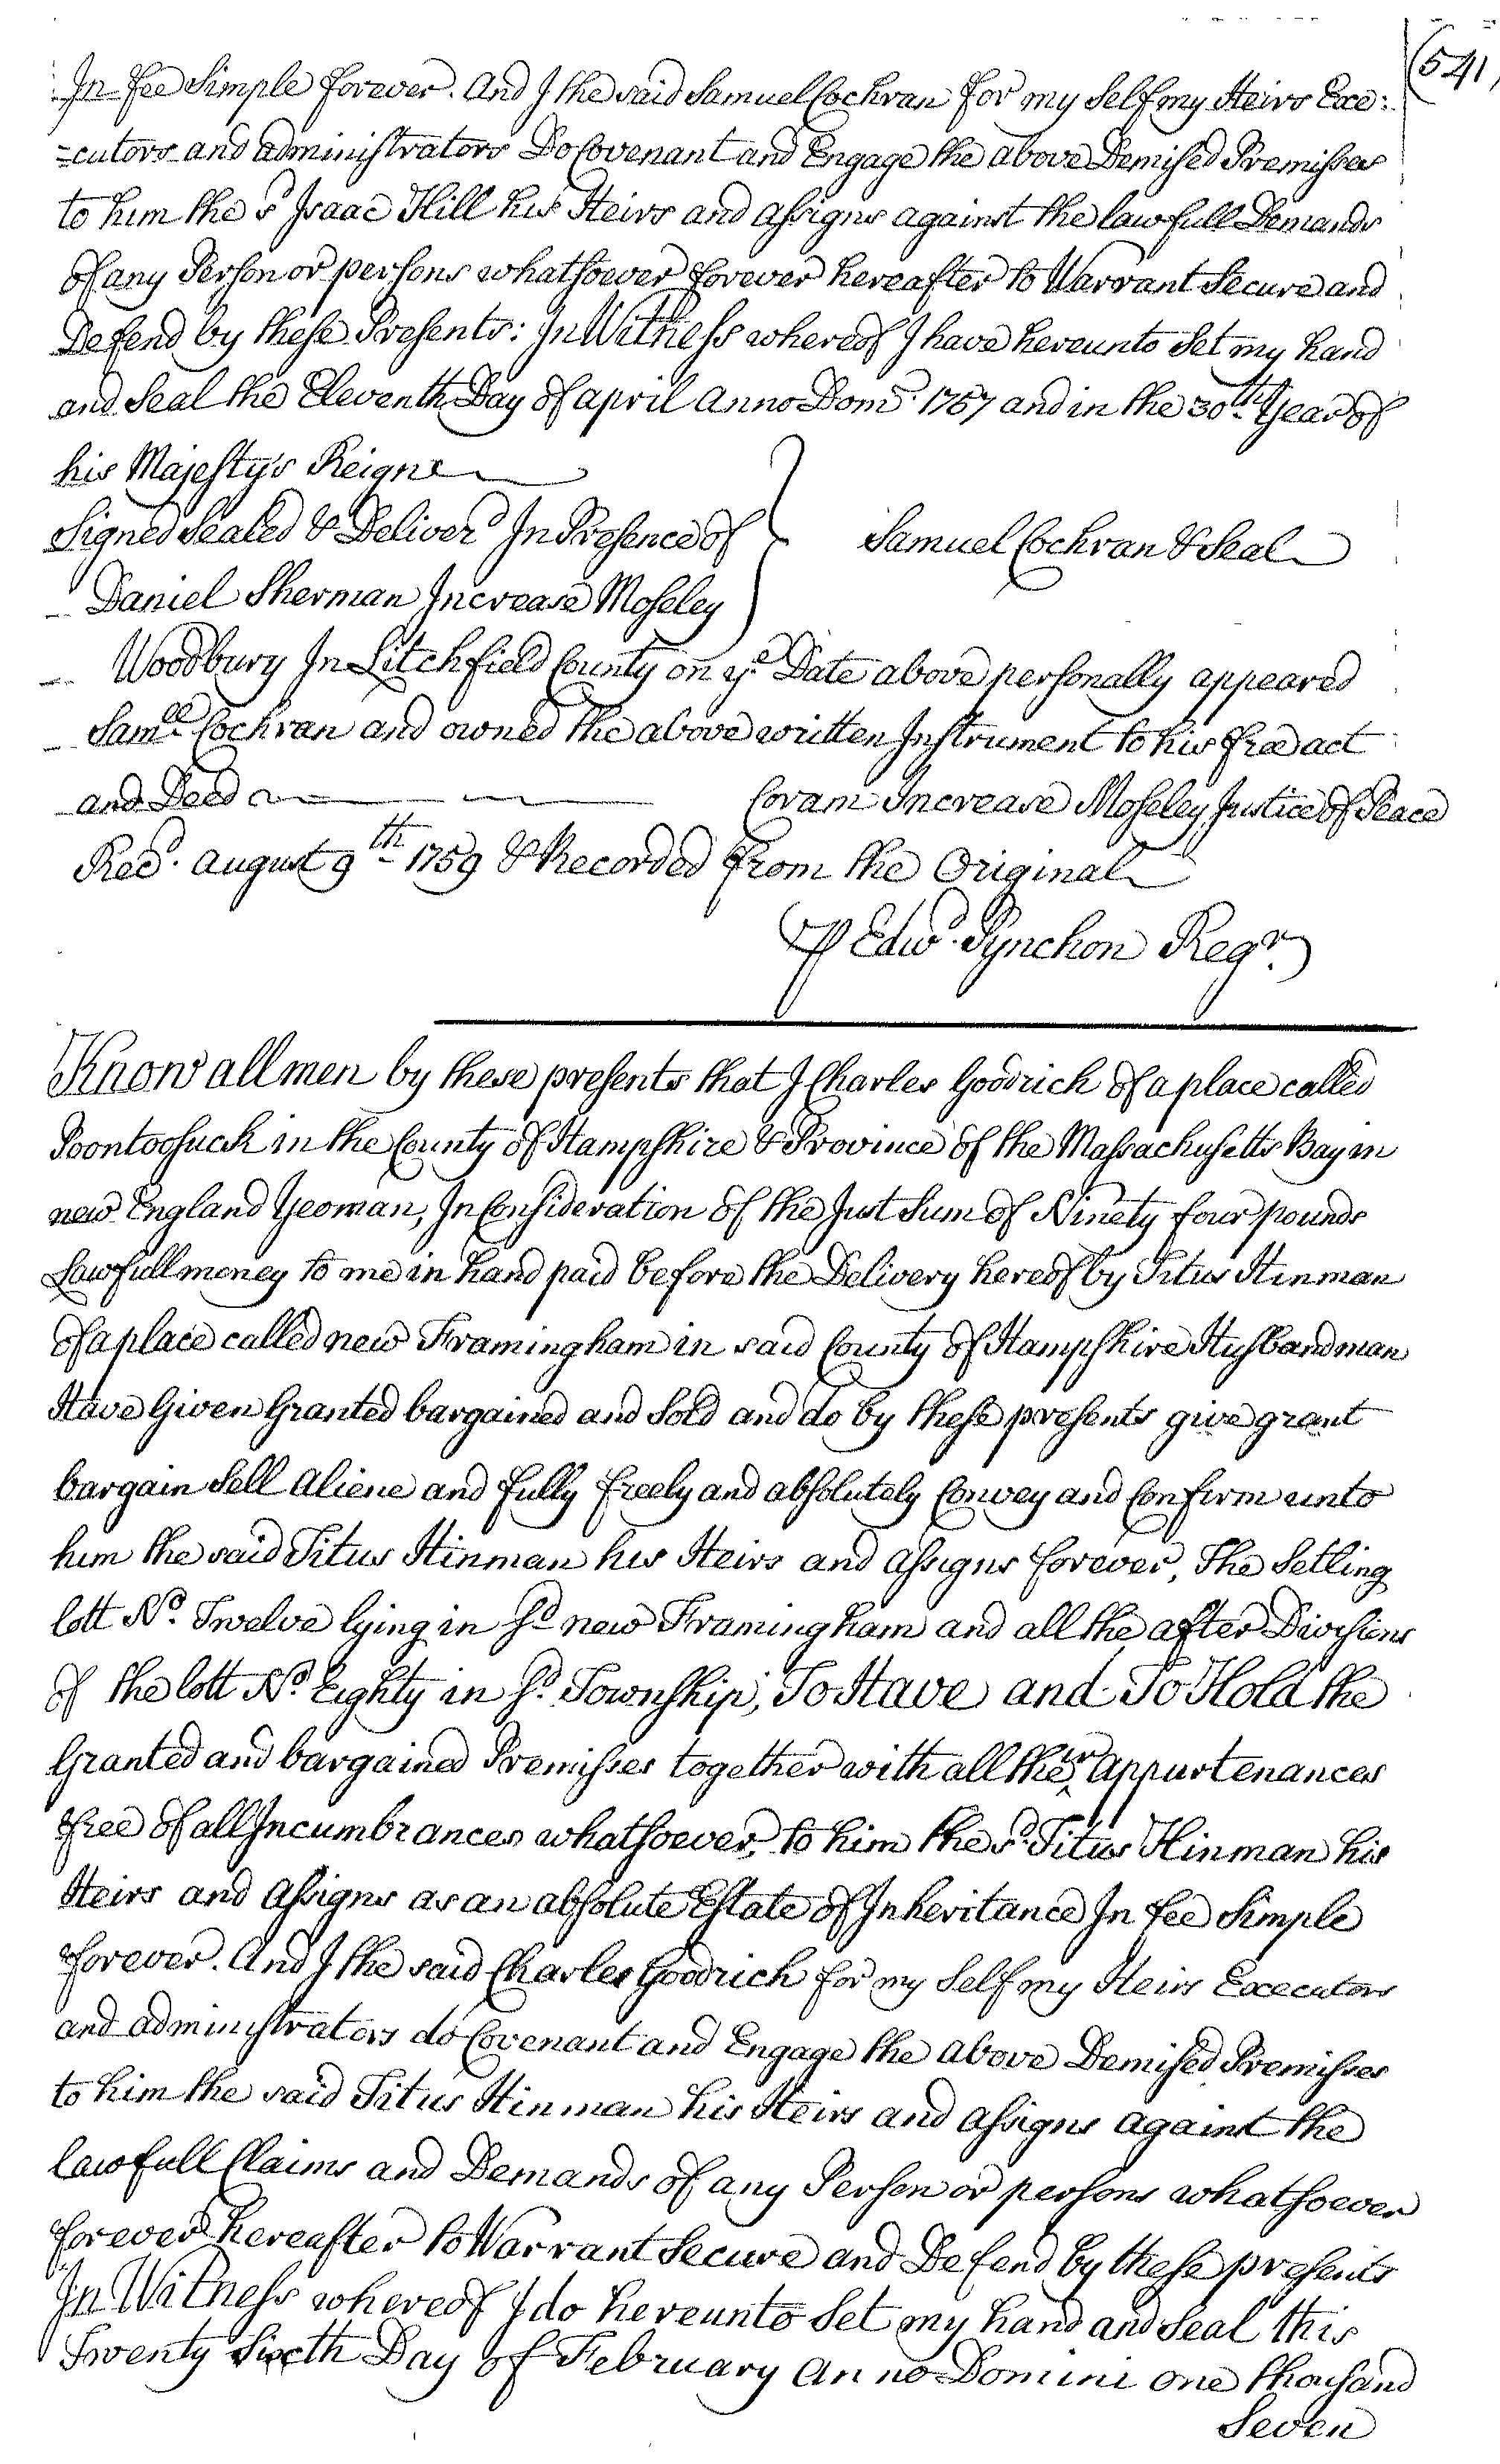 (541,
In fee Simple forever. And I the said Samuel Cochran for my Self my Heirs Exe:
=cutors and administrators Do Covenant and Engage the above Demised Premisses
to him the sd Isaac Hill his Heirs and assigns against the lawfull Demands
of any Person or persons whatsoever forever hereafter to Warrant Secure and
Defend by these Presents: In Witness whereof I have hereunto Set my hand
and Seal the Eleventh Day of april anno Domi. 1757 and in the 30th Year of
his Majesty's Reigne
Signed Sealed & Deliverd In Presence of } Samuel Cochran & Seal
Daniel Sherman Increase Moseley
Woodbury In Litchfield County on ye Date above personally appeared
Samll Cochran and owned the above written Instrument to his free act
and Deed Coram Increase Moseley Justice of Peace
Recd. august 9th 1759 & Recorded from the Original
P Edwd. Pynchon Regr.
Know all men by these presents that I Charles Goodrich of a place called
Poontoosuck in the County of Hampshire & Province of the Massachusetts Bay in
new England Yeoman, In Consideration of the Just Sum of Ninety four pounds
Lawfull money to me in hand paid before the Delivery hereof by Titus Hinman
of a place called new Framingham in said County of Hampshire Husbandman
Have Given Granted bargained and Sold and do by these presents give grant
bargain Sell aliene and fully freely and absolutely Convey and Confirm unto
him the said Titus Hinman his Heirs and assigns forever, The Setling
lott No. Twelve lying in sd new Framingham and all the after Divisions
of the lott No. Eighty in sd. Township, To Have and To Hold the
Granted and bargained Premisses together with all their appurtenances
free of all Incumbrances whatsoever, to him the sd. Titus Hinman his
Heirs and assigns as an absolute Estate of Inheritance In fee Simple
forever. And I the said Charles Goodrich for my Self my Heirs Executors
and administrators do Covenant and Engage the above Demised Premisses
to him the said Titus Hinman his Heirs and assigns against the
lawfull Claims and Demands of any Person or persons whatsoever
forever hereafter to Warrant Secure and Defend by these presents
In Witness whereof I do hereunto Set my hand and Seal this
Twenty Sixth Day of February anno Domini one thousand
Seven